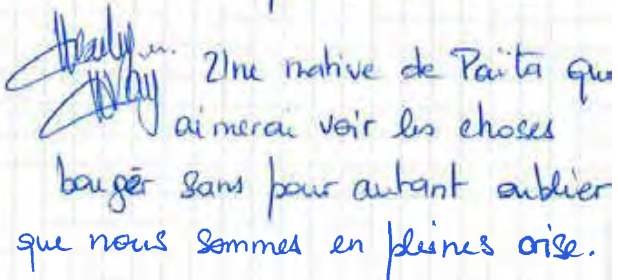 Une native de Païta que
aimerai voir les choses
bouger sans pour autant oublier
que nous sommes en pleines crise.